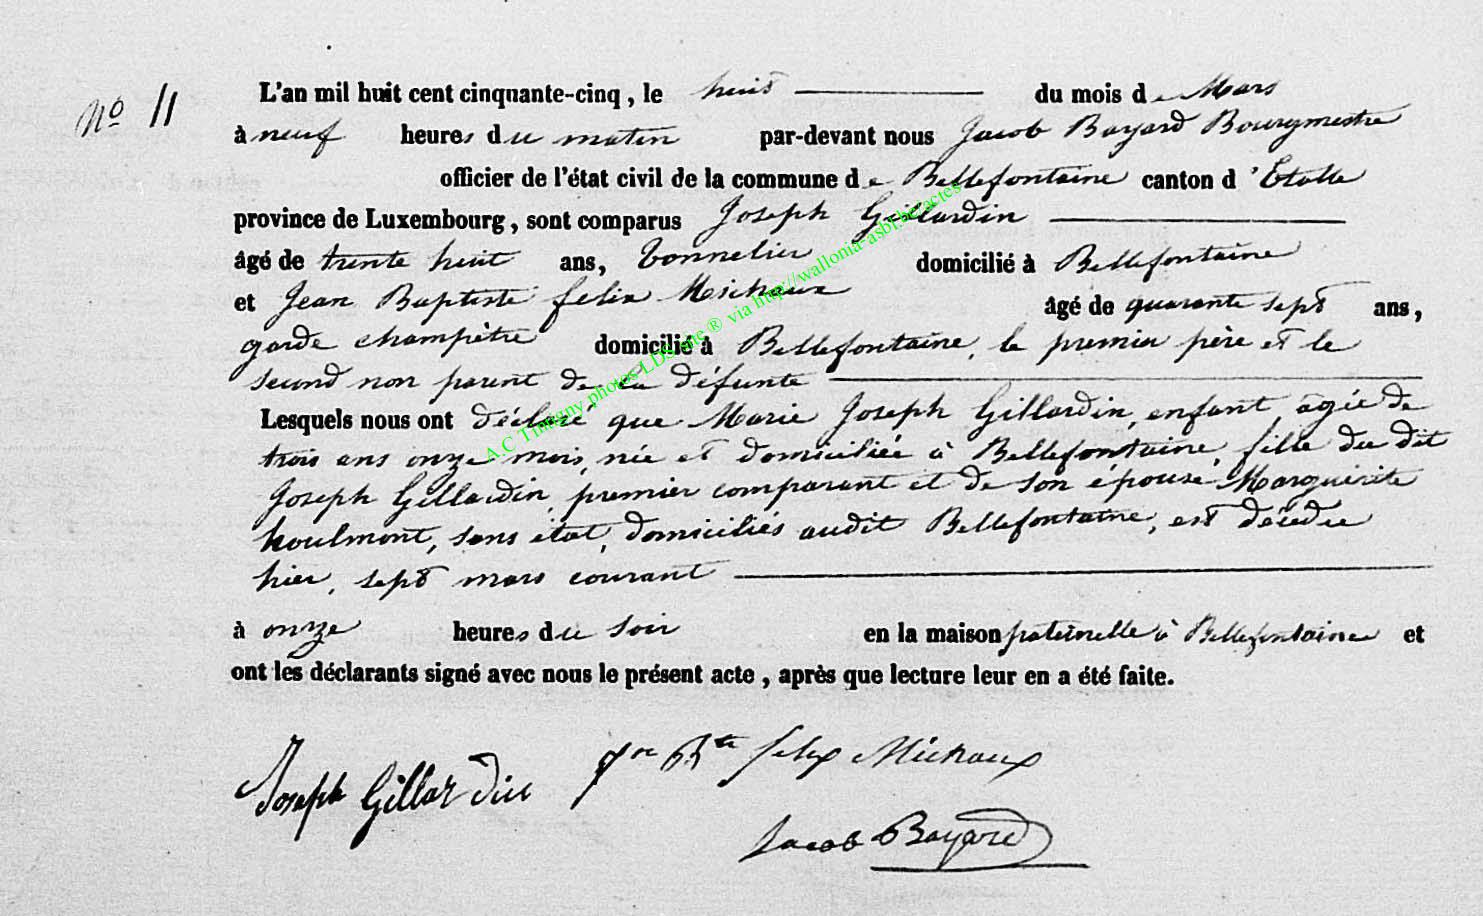 No 11
L'an mil huit cent cinquante-cinq, le huit du mois de Mars
à neuf heures du matin par-devant nous Jacob Bayard Bourgmestre
officier de l'état civil de la commune de Bellefontaine canton d'Etalle
province de Luxembourg, sont comparus Joseph Gillardin
âgé de trente huit ans, tonnelier domicilié à Bellefontaine
et Jean Baptiste felix Michaux âgé de quarante sept ans,
garde champètre domicilié à Bellefontaine, le premier père et le
second non parent de la défunte
Lesquels nous ont déclaré que Marie Joseph Gillardin, enfant, agée de
trois ans onze mois, née et domiciliée à Bellefontaine, fille du dit
Joseph Gillardin, premier comparant et de son épouse Marguerite
houlmont, sans état, domiciliés audit Bellefontaine, est décédée
hier, sept mars courant
à onze heures du soir en la maison paternelle à Bellefontaine et
ont les déclarants signé avec nous le présent acte, après que lecture leur en a été faite.
Joseph Gillardin Jn Bte felix Michaux
Jacob Bayard
A.C Tintigny photos LDS site ® via http://wallonia-asbl.be/actes